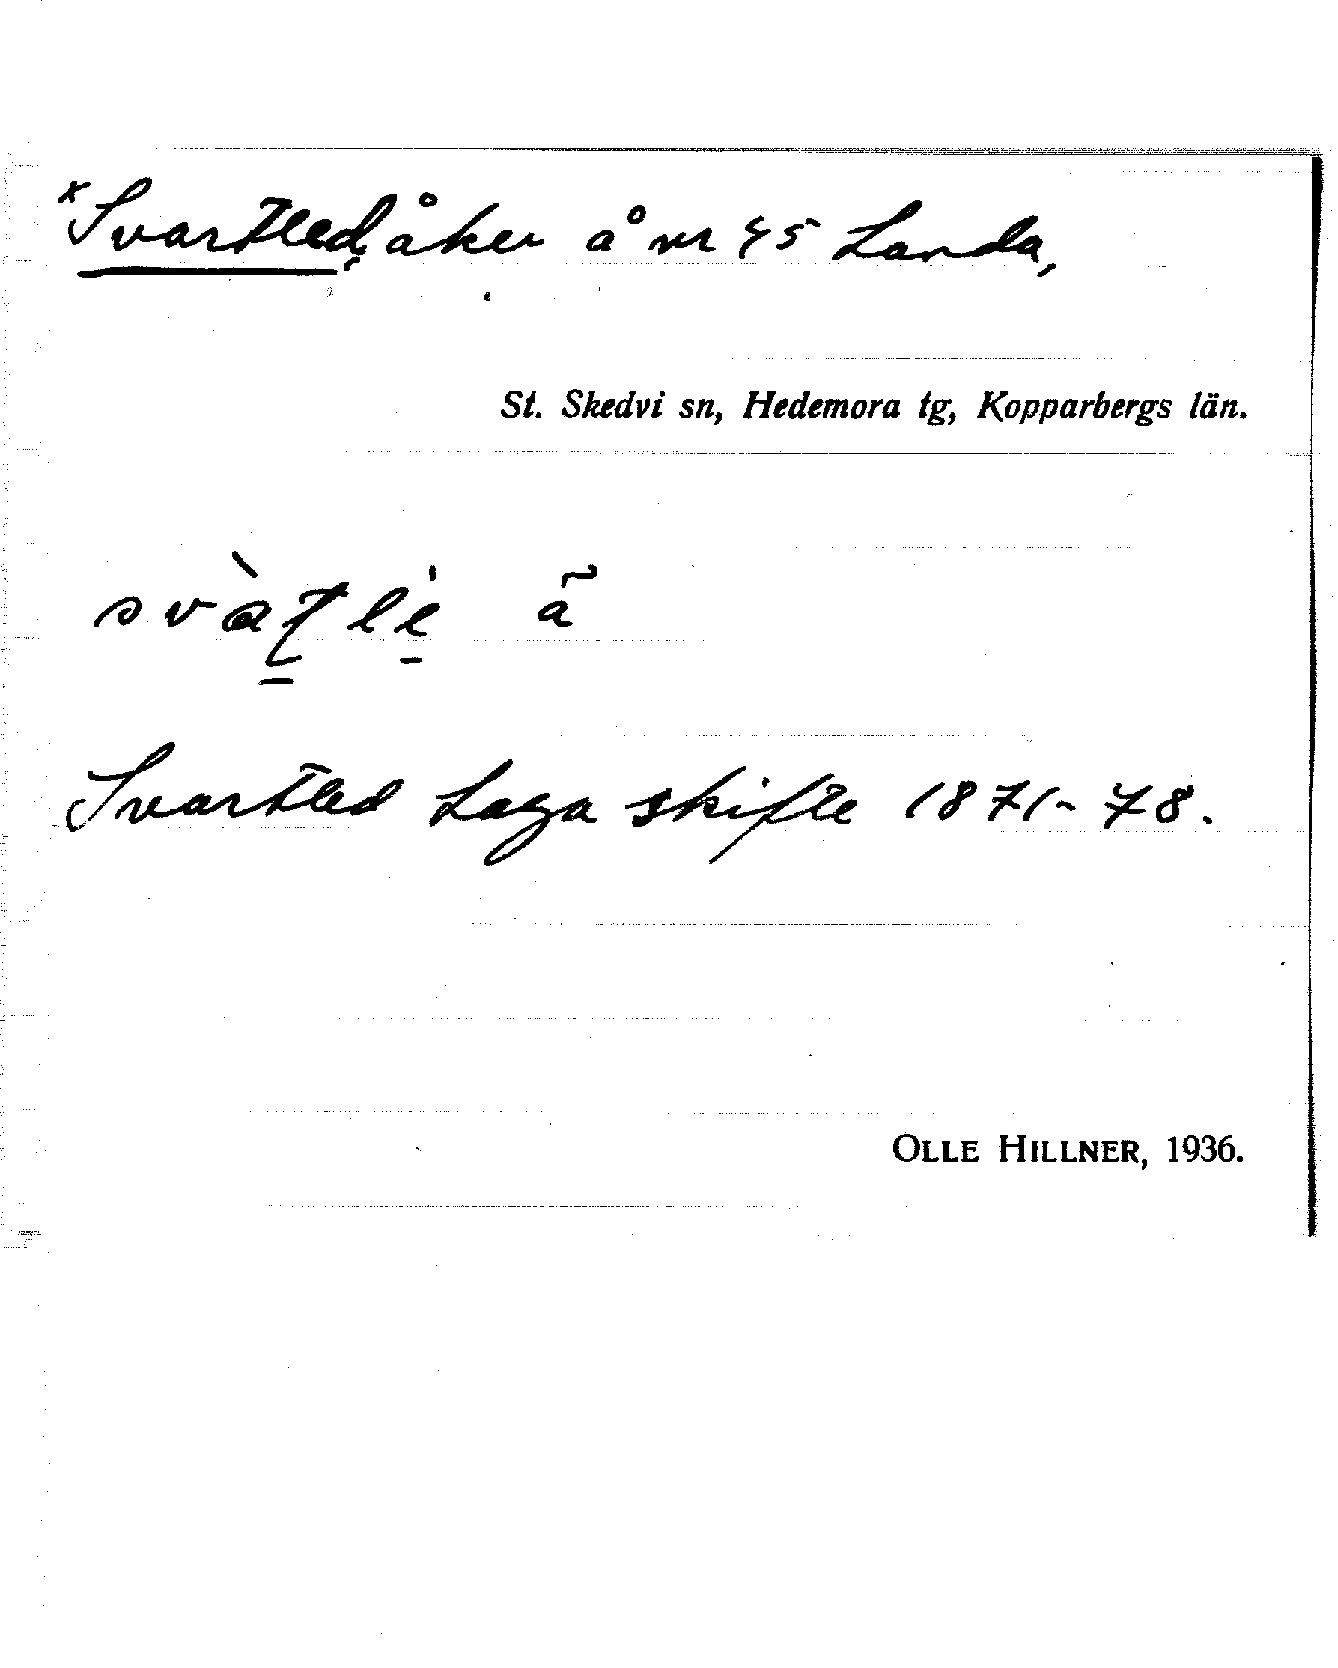 *Svartled, åker å nr 45 Landa,
St. Skedvi sn, Hedemora tg, Kopparbergs län.
Svartled Laga skifte 1871-78.
OLLE HILLNER, 1936.